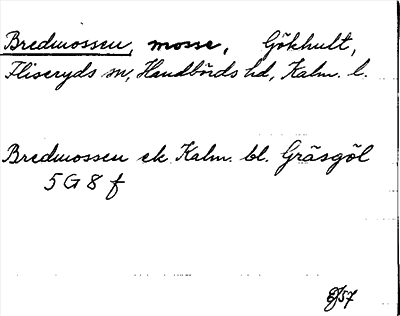 Bredmossen, mosse, Gökhult,
Fliseryds sn, Handbörds hd, Kalm. l.
Bredmossen ek. Kalm. bl. Gräsgöl
5 G 8 f
EJ57